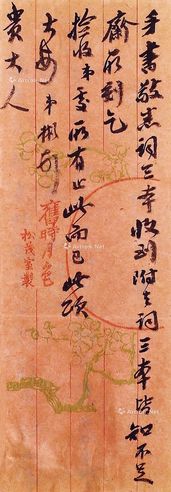 手書敬悉詞三本收到附去詞三本皆知不足
齋所刻乞
撿收弟處所有止此而已此頌
大安 弟彬頓
貴大人
舊時月色
松茂室製